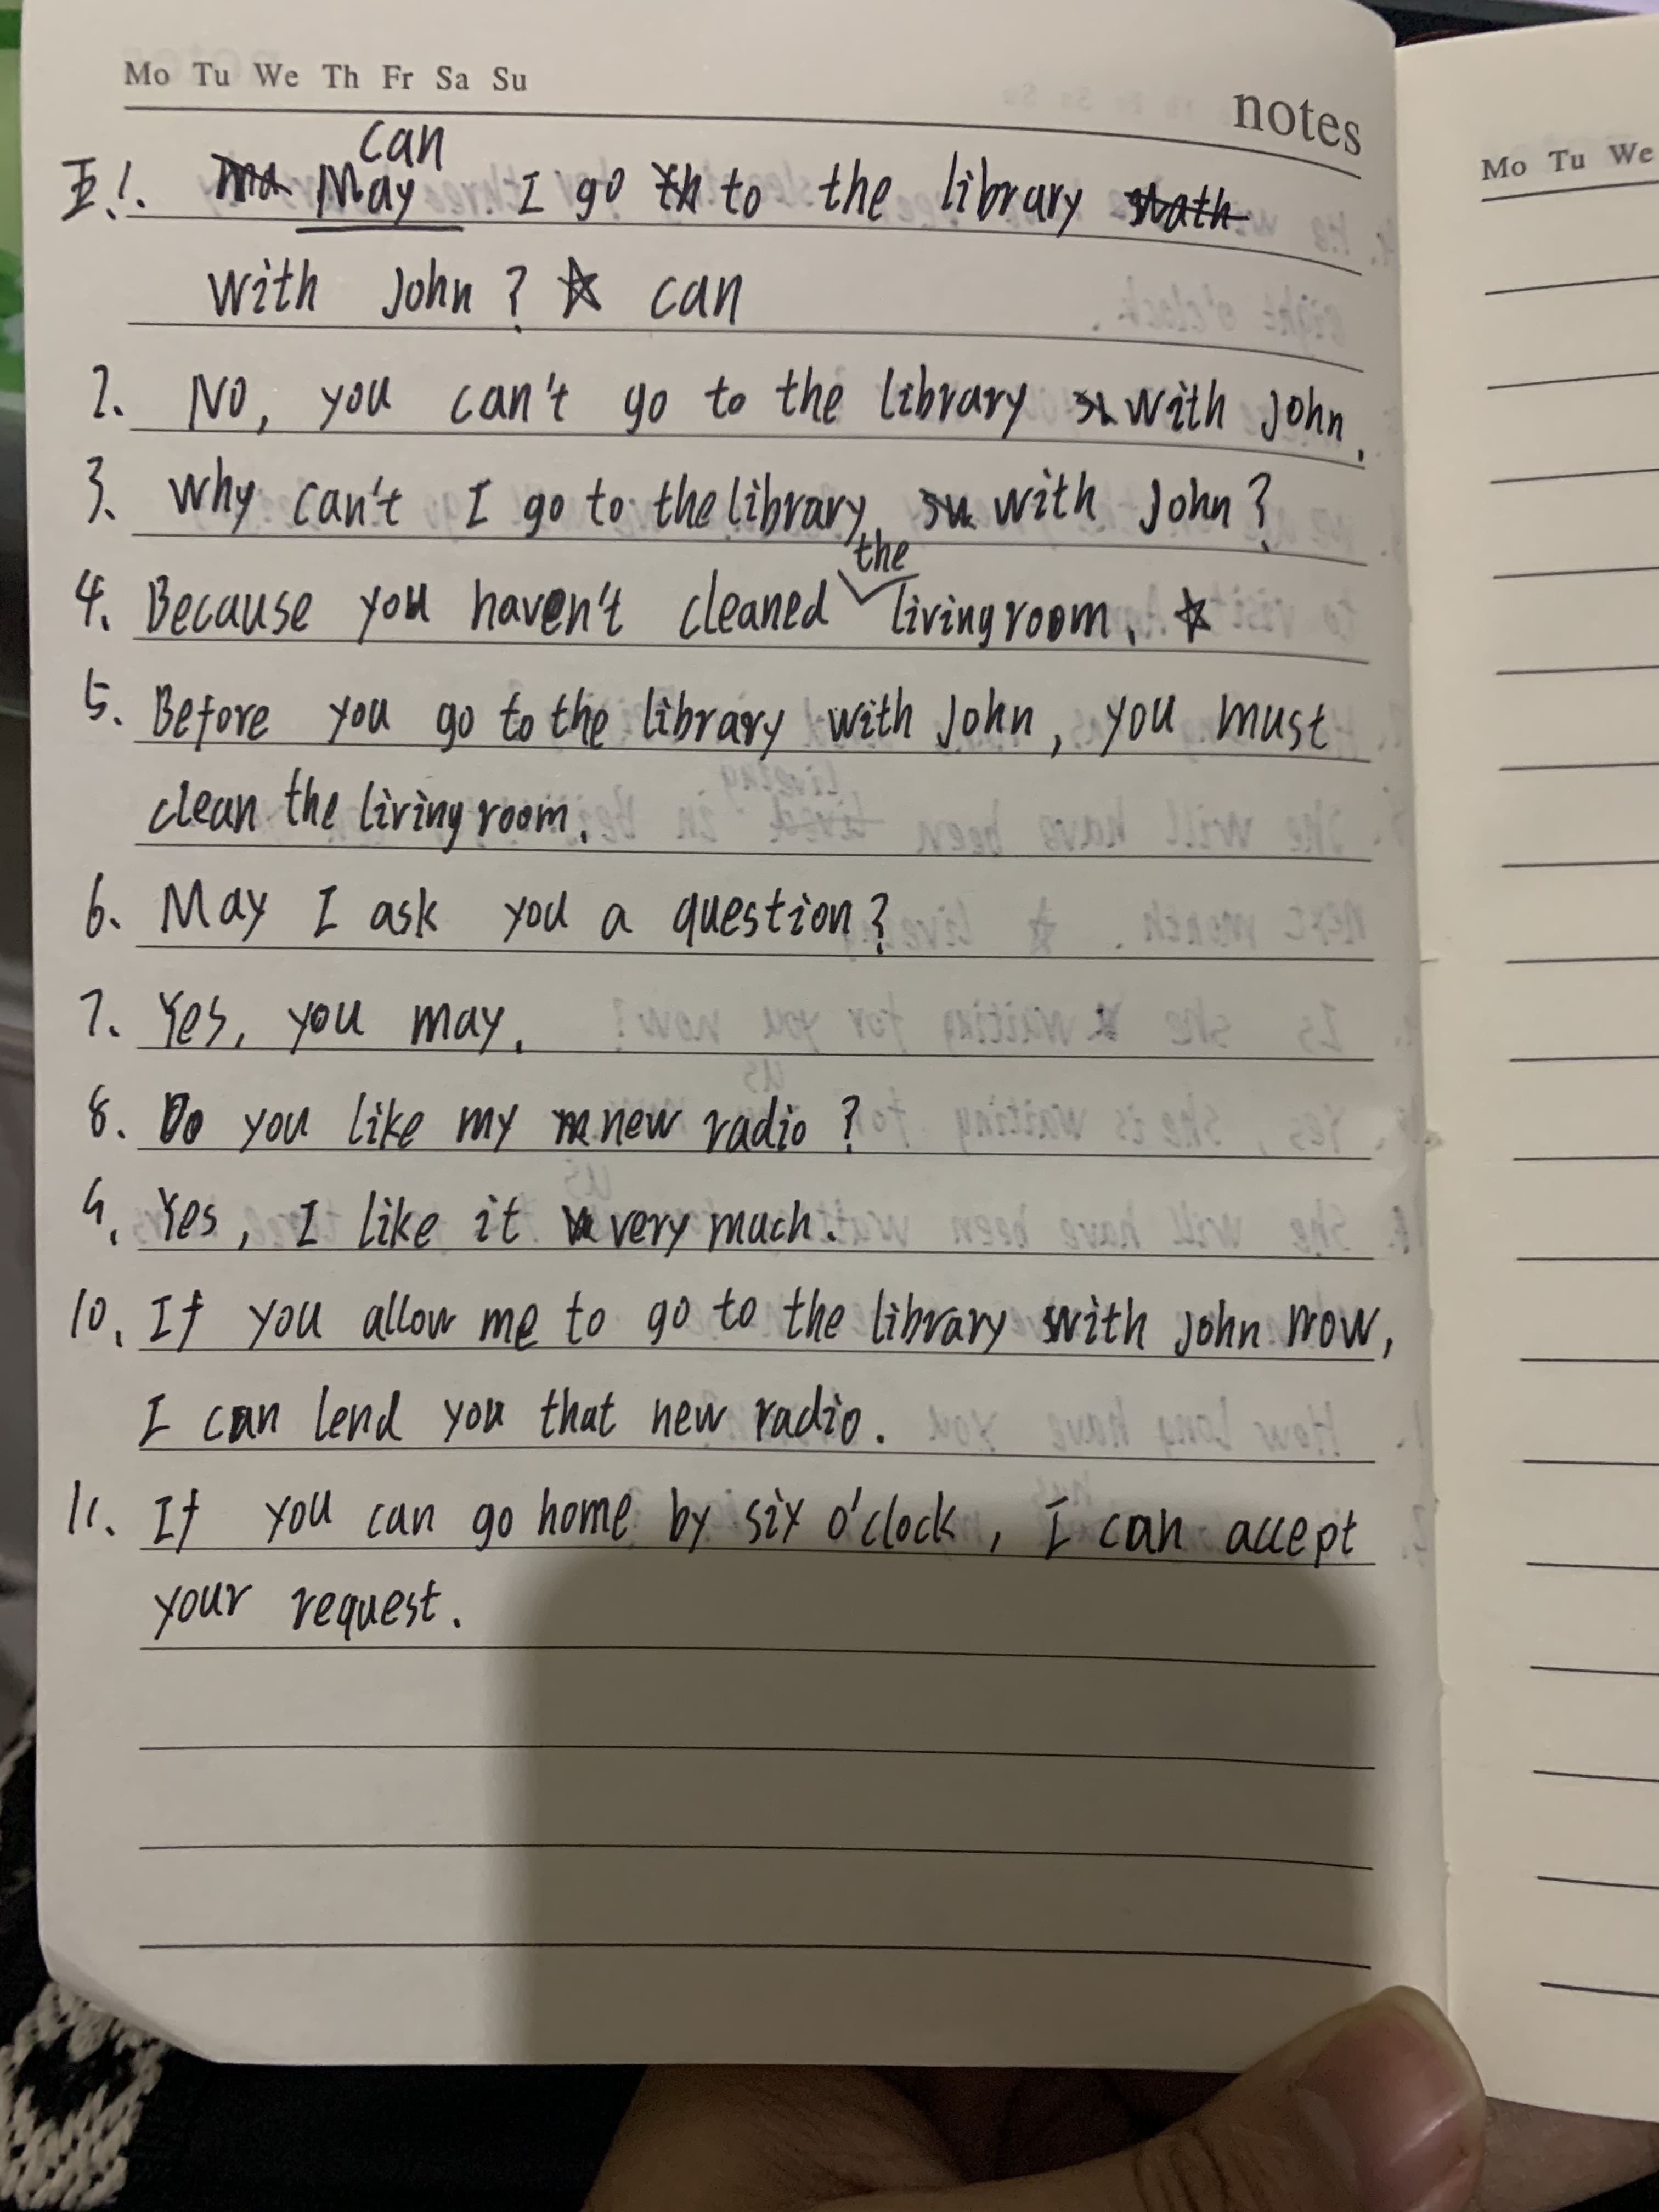 Mo Tu We Th Fr Sa Su
notes
Mo Tu We
can
II.1. May I go to the library
with John? ☆ can
2. No, you can't go to the library with John.
3. Why can't I go to the library with John?
the
4. Because you haven't cleaned livingroom. ☆
5. Before you go to the library with John, you must
clean the livingroom.
6. May I ask you a question?
7. Yes, you may.
8. Do you like my new radio?
9. Yes, I like it very much.
10. If you allow me to go to the library with John now,
I can lend you that new radio.
11. If you can go home by six o'clock, I can accept
your request.